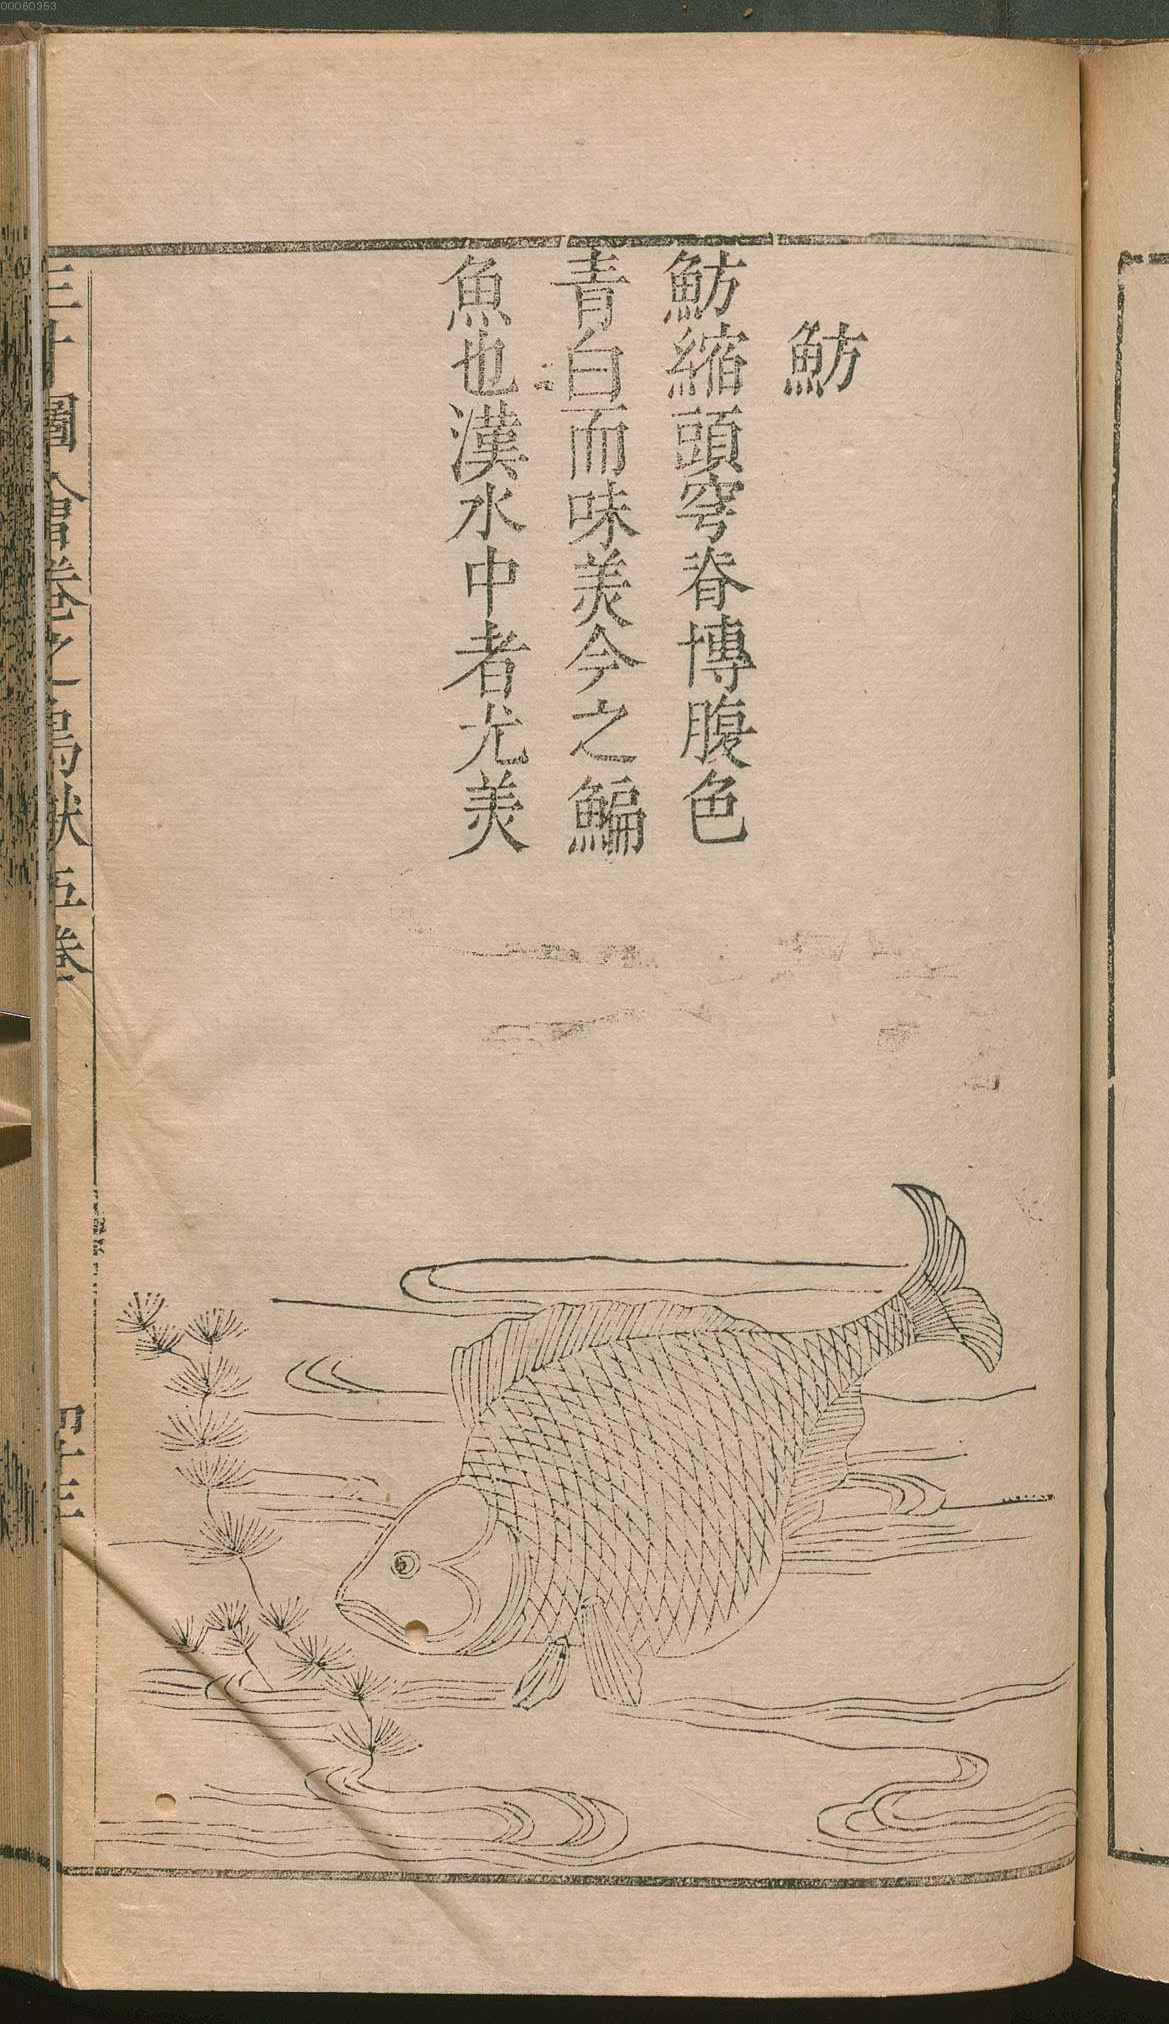 魴
魴縮頭穹脊博腹色
青白而味羙今之鯿
魚也漢水中者尤羙
三才圖會卷之鳥獸五卷
00060353